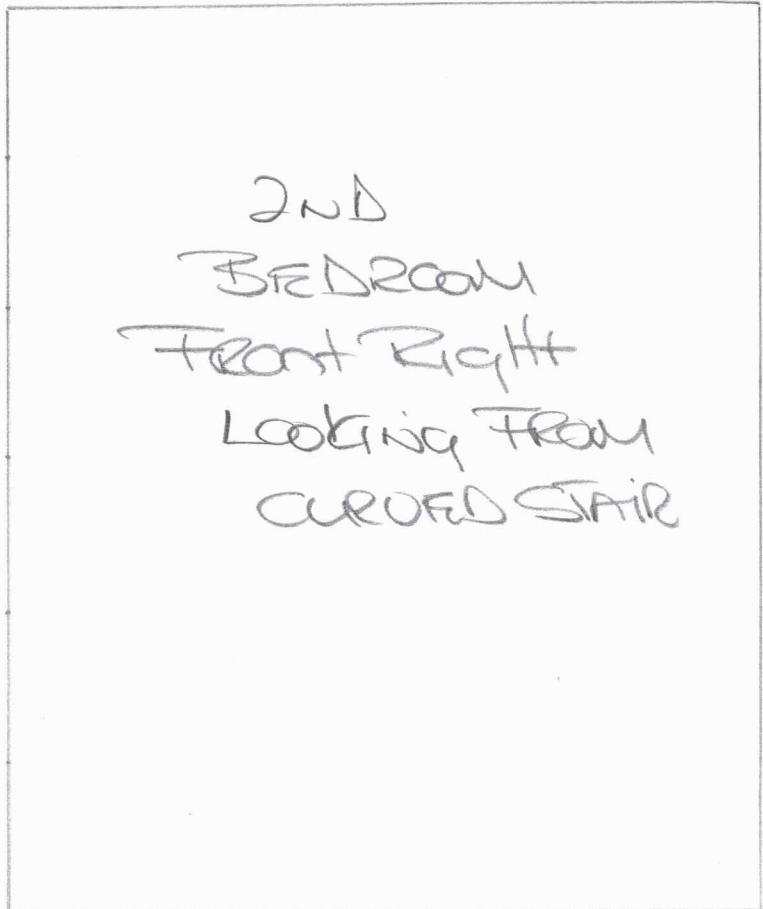 2ND
BEDROOM
Front Right
Looking From
CURVED STAIR